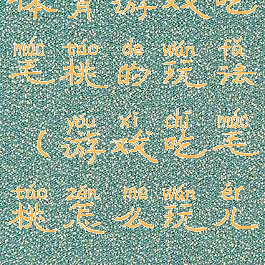 体育游戏吃
máo táo de wán fǎ
毛桃的玩法
yóu xì chī máo
（游戏吃毛
táo zěn me wán ér
桃怎么玩儿